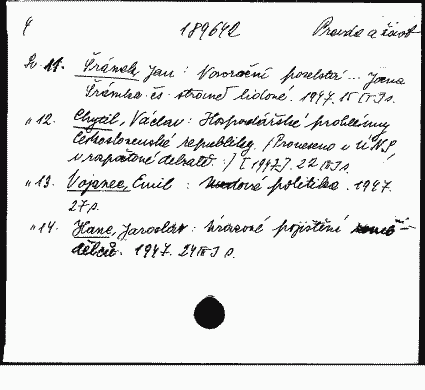 189642 Pravda a život
Sv. 11. Šrámek, Jan: Novoroční poselství ... Jana
Šrámka čs. straně lidové. 1947. 15
„ 12. Chytil, Václav: Hospodářské problémy
československé republiky. /Proneseno v ÚNS,
v rozpočtové debatě./ [1947]. 22
„ 13. Vojanec, Emil: Mzdová politika. 1947.
27 s.
„ 14. Hanc, Jaroslav: Úrazové pojištění země-
dělců. 1947. 24